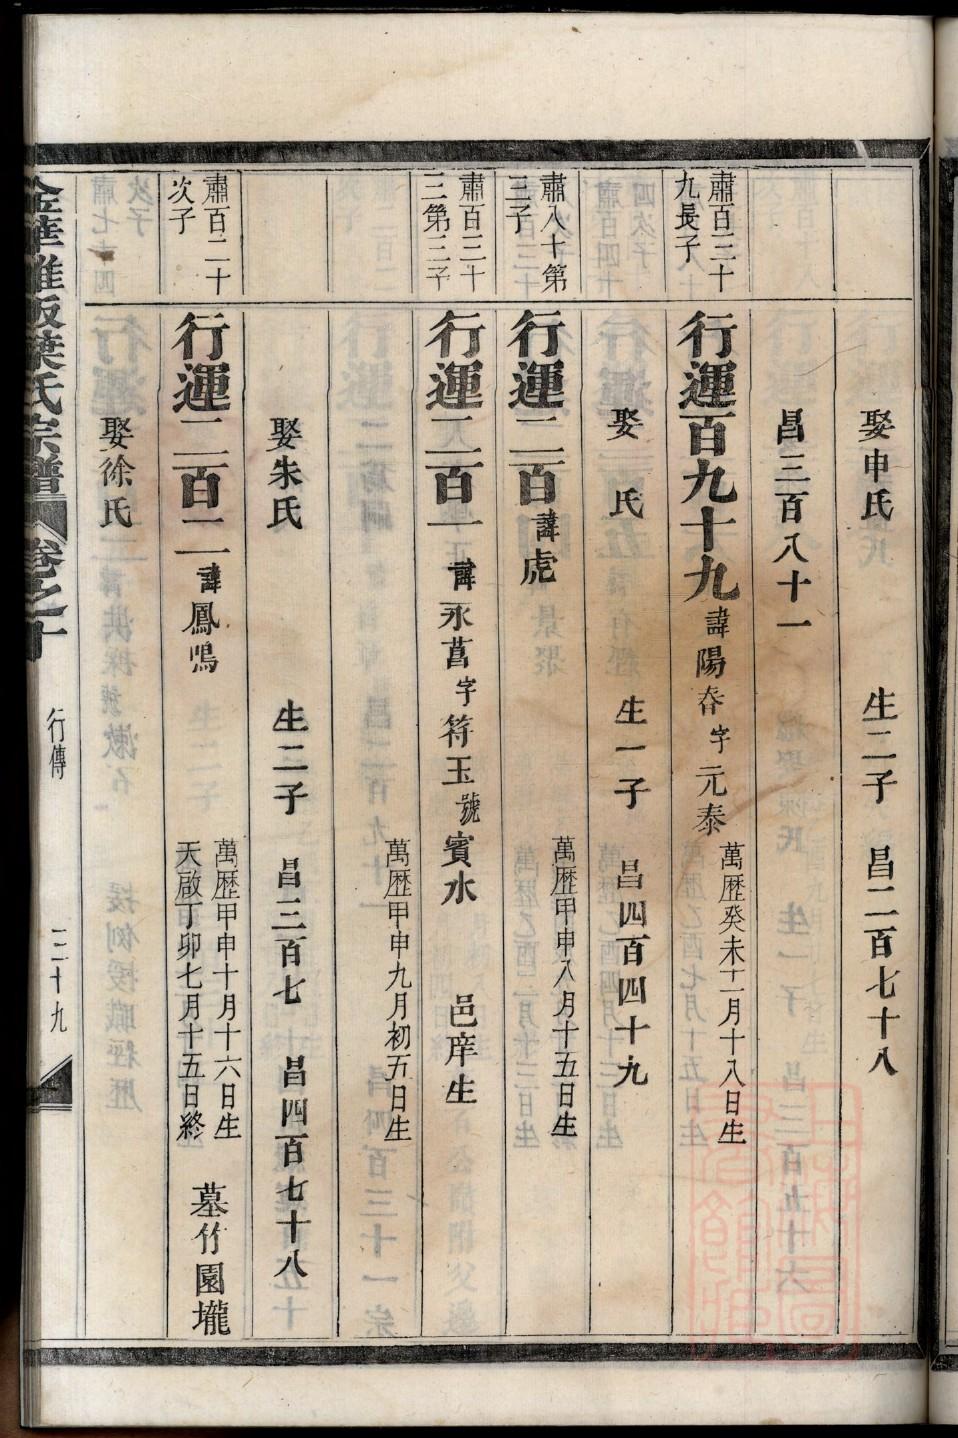 娶申氏 生二子 昌二百七十八
昌三百八十一
肅百三十九長子
行運百九十九 諱陽春 字元泰 萬歷癸未十二月十八日生
娶 氏 生一子 昌四百四十九
肅八十第三子
行運二百 諱虎 萬歷甲申八月十五日生
肅百三十三第三子
行運二百一 諱永菖 字符玉 號賓水 邑庠生
萬歷甲申九月初五日生
娶朱氏 生二子 昌三百七十 昌四百七十八
肅百二十次子
行運二百二 諱鳳鳴 萬歷甲申十月十六日生 天啟丁卯七月十五日終 墓竹園壠
娶徐氏
葉氏宗譜 卷之十 行傳 三十九